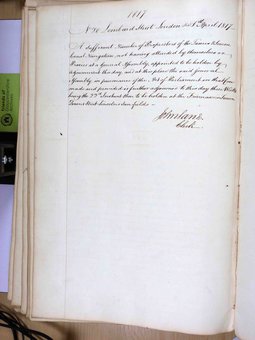 1817
No 70 Lombard Street London 1st April 1817
A sufficient Number of Proprietors of the Thames & Severn
Canal Navigation, not having attended by themselves or
Proxies at a General Assembly, appointed to be holden by
Adjournment this day, and at this place the said General
Assembly, in pursuance of the Act of Parliament in that case
made and provided is further adjourned to this day three Weeks
being the 22nd Instant then to be holden at the Freemasons Tavern
Great Queen Street Lincolns Inn fields
Clerk